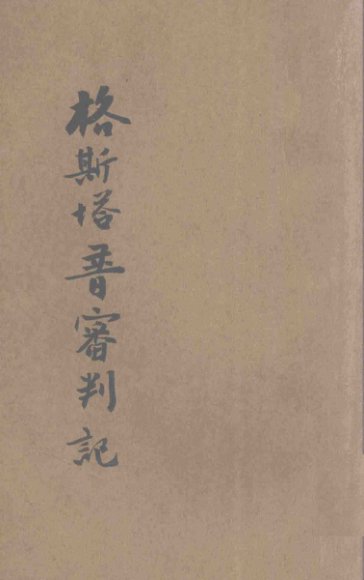 格斯塔普審判記